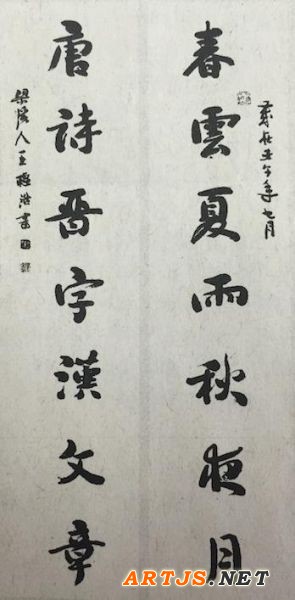 春雲夏雨秋夜月
歲在壬午年七月
唐詩晉字漢文章
梁溪人王
書
ARTJS.NET